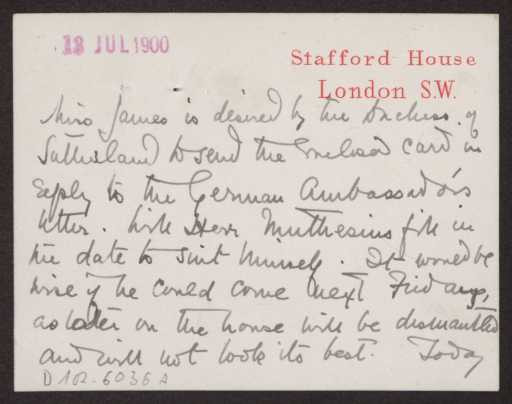 13 JUL 1900
Stafford House
London S.W.
Miss James is desired by the Duchess of
Sutherland to send the Enclosed Card in
Reply to the German Ambassador's
letter. Will Herr Muthesius fill in
the date to suit himself. It would be
wise if he could come next Friday,
as later on the house will be dismantled
and will not look its best. Today
D 102-6036 A